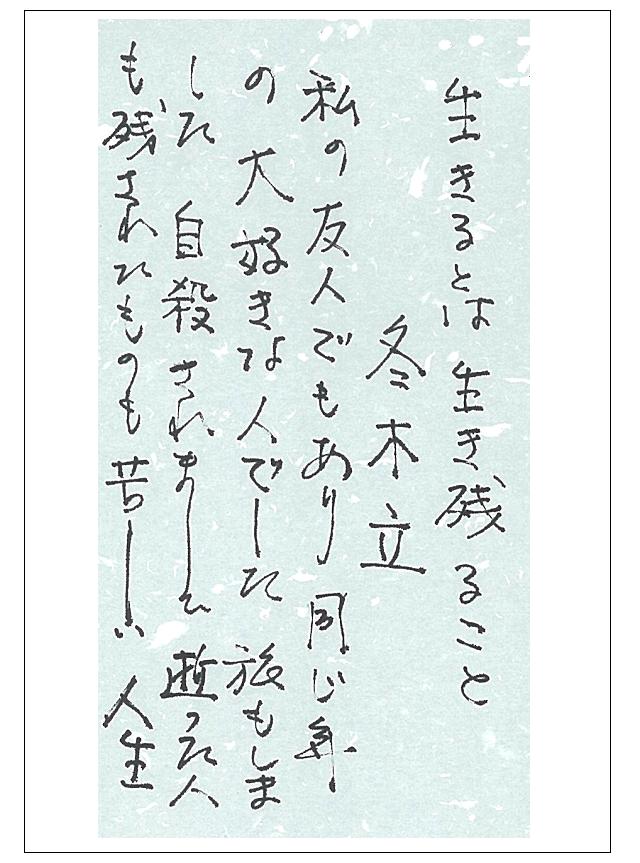 生きるとは生き残ること
冬木立
私の友人でもあり同じ年
の大好きな人でした旅もしま
した自殺されました逝った人
も残されたものも苦しい人生